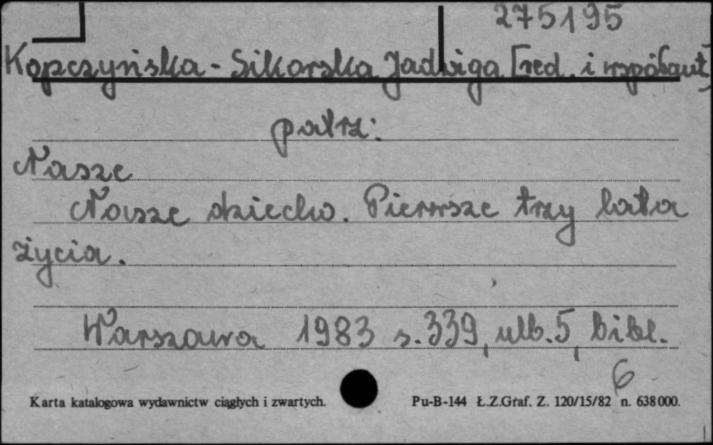 275195
Kopczyńska-Sikorska Jadwiga [red. i współaut]
patrz:
Nasze
Nasze dziecko. Pierwsze trzy lata
życia.
Warszawa 1983 s.339, ulb.5, bibl.
6
Karta katalogowa wydawnictw ciągłych i zwartych. Pu-B-144 Ł.Z.Graf. Z. 120/15/82 n. 638 000.